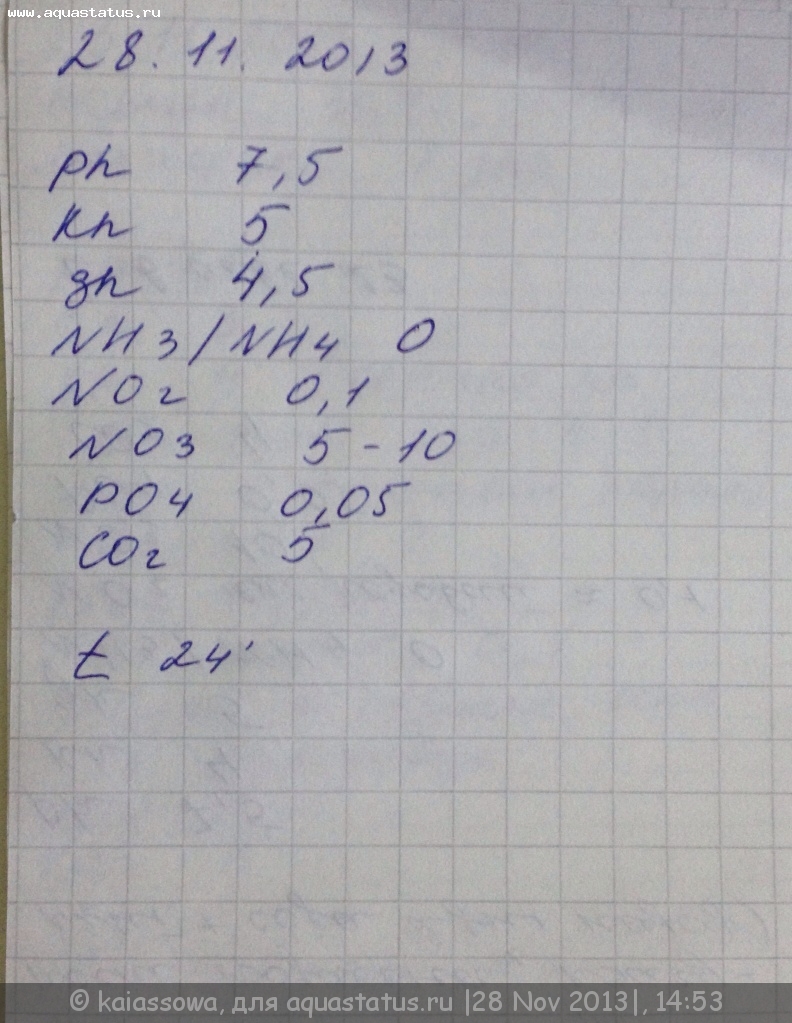 www.aquastatus.ru
28. 11. 2013
ph 7,5
kh 5
gh 4,5
NH3/NH4 0
NO2 0,1
NO3 5-10
PO4 0,05
CO2 5
t 24°
© kaiassowa, для aquastatus.ru |28 Nov 2013|, 14:53